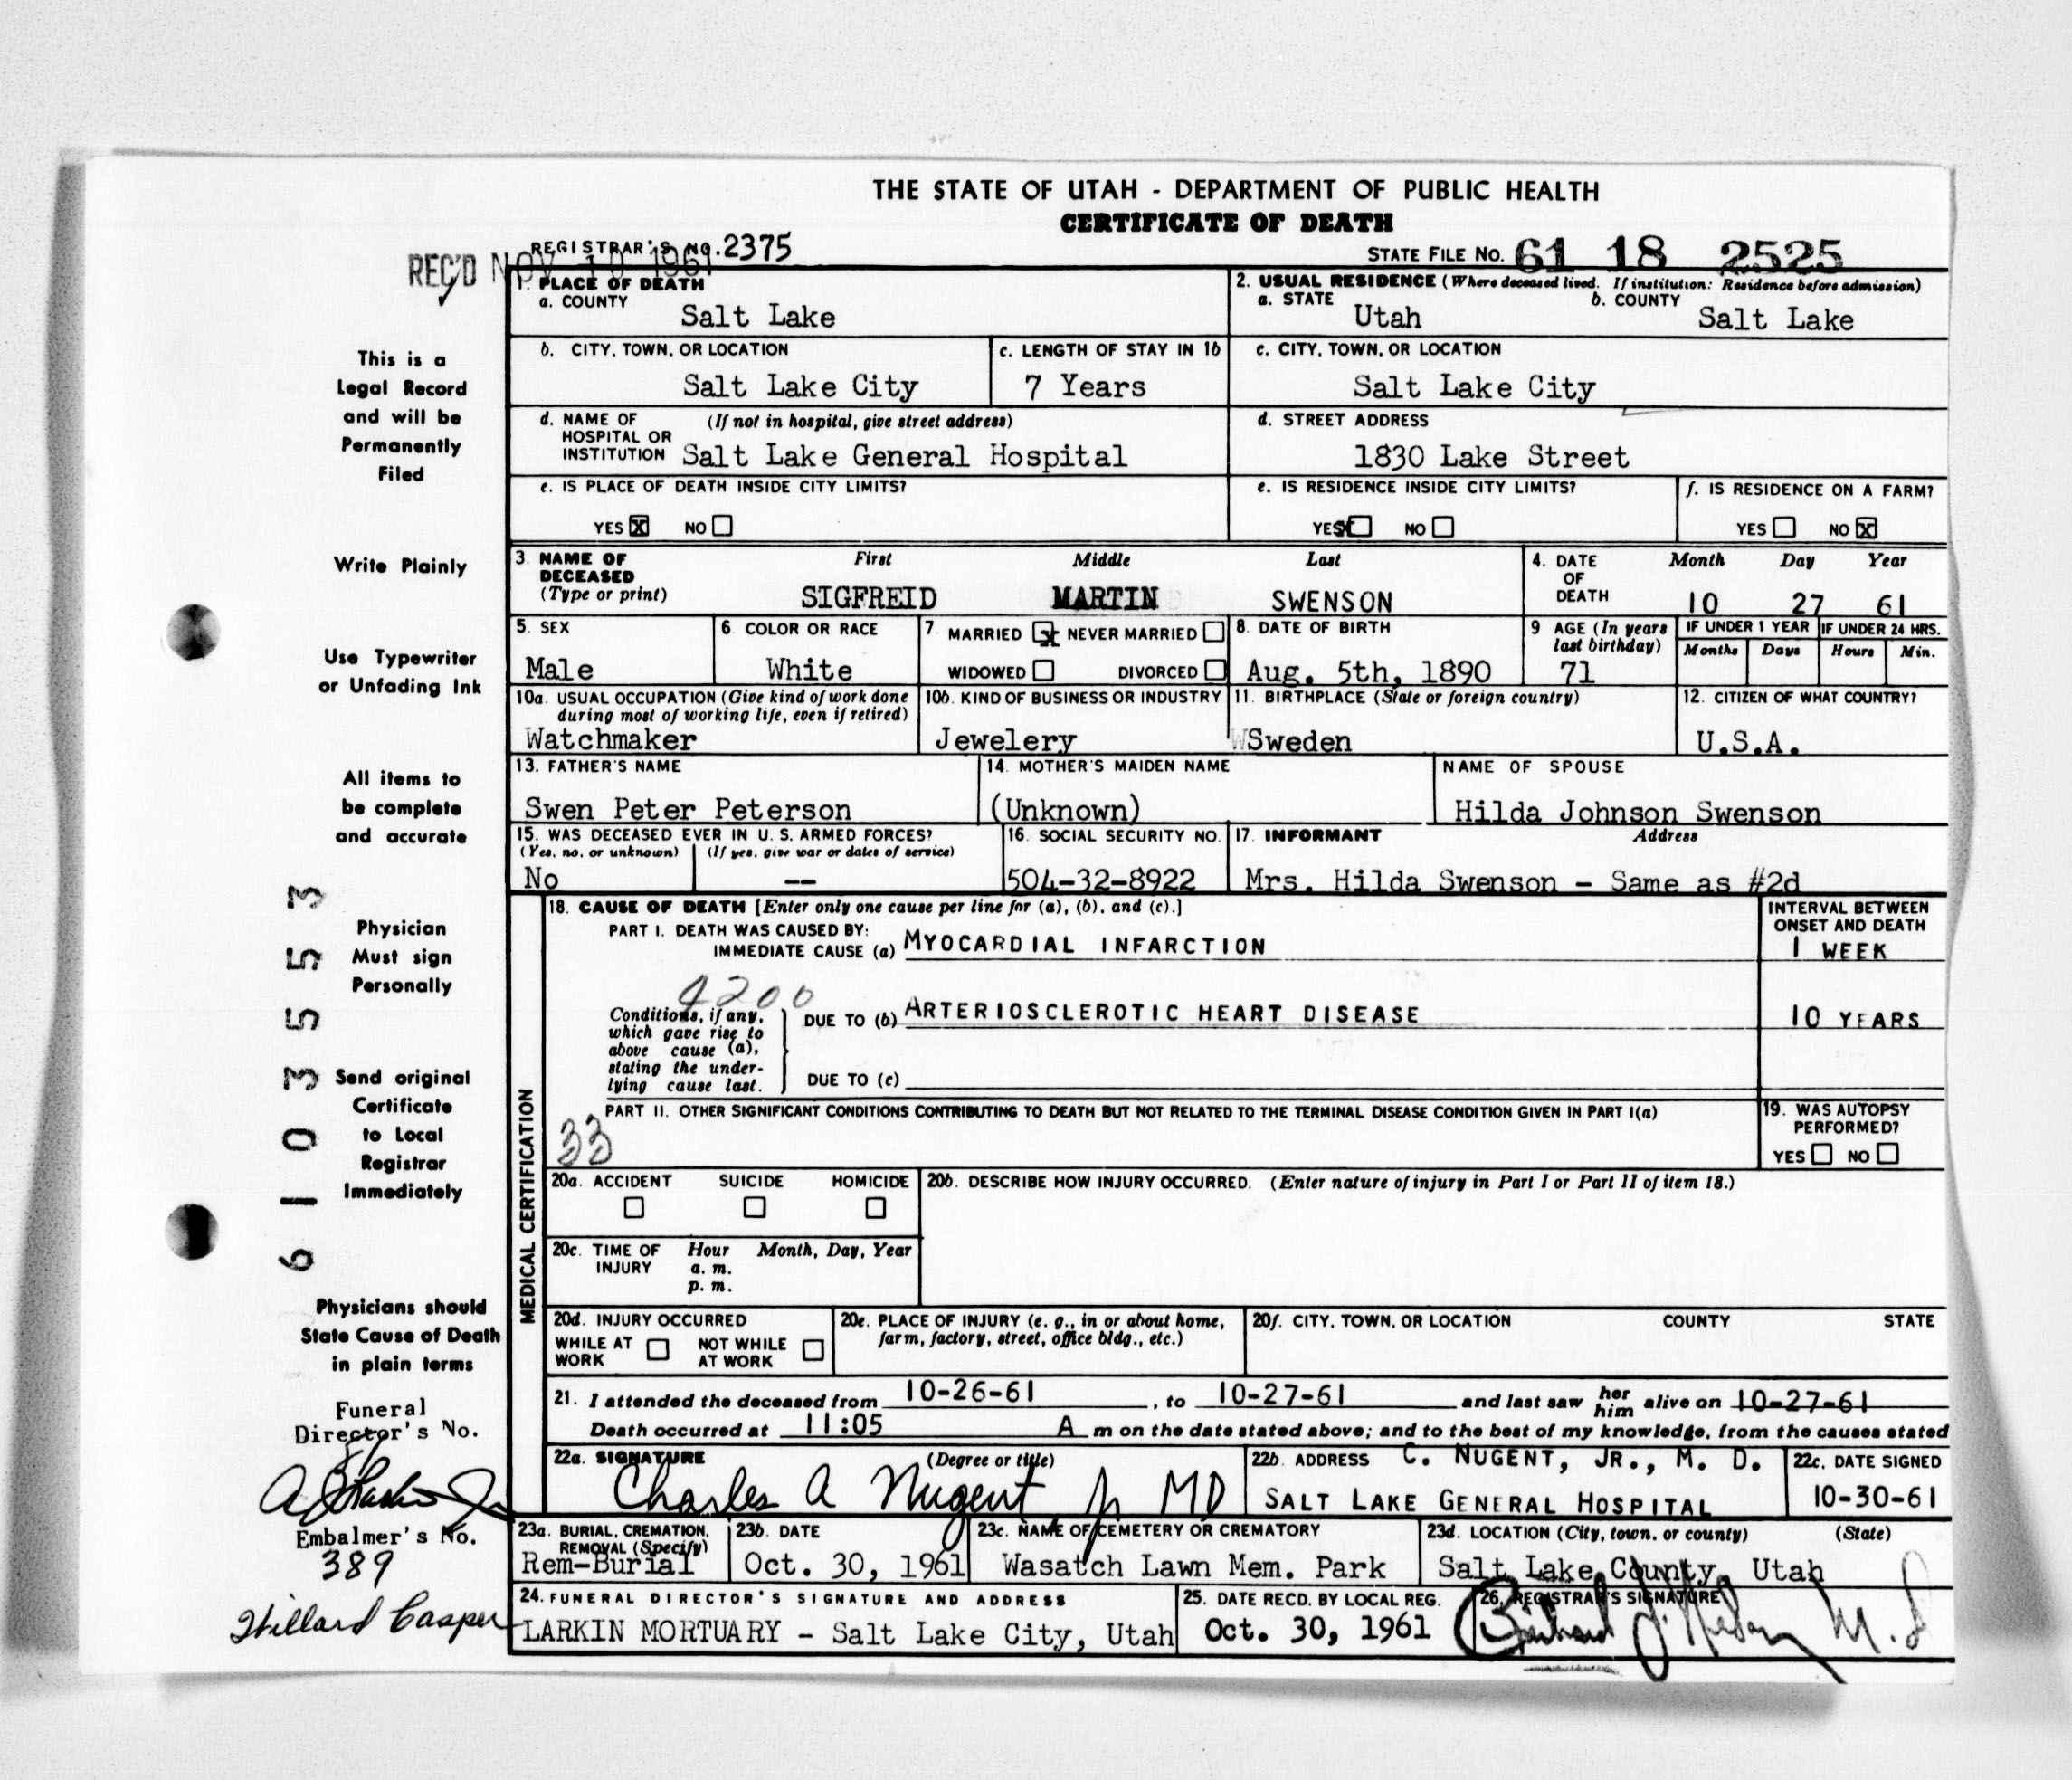 THE STATE OF UTAH - DEPARTMENT OF PUBLIC HEALTH
CERTIFICATE OF DEATH
REGISTRAR'S NO. 2375
STATE FILE NO. 61 18 2525
REC'D NOV 10 1961
1. PLACE OF DEATH
a. COUNTY
Salt Lake
2. USUAL RESIDENCE (Where deceased lived. If institution: Residence before admission)
a. STATE
Utah
b. COUNTY
Salt Lake
This is a
Legal Record
and will be
Permanently
Filed
b. CITY, TOWN, OR LOCATION
Salt Lake City
c. LENGTH OF STAY IN 1b
7 Years
c. CITY, TOWN, OR LOCATION
Salt Lake City
d. NAME OF (If not in hospital, give street address)
HOSPITAL OR
INSTITUTION Salt Lake General Hospital
d. STREET ADDRESS
1830 Lake Street
e. IS PLACE OF DEATH INSIDE CITY LIMITS?
YES X NO
e. IS RESIDENCE INSIDE CITY LIMITS?
YES X NO
f. IS RESIDENCE ON A FARM?
YES NO X
Write Plainly
3. NAME OF DECEASED (Type or print)
First Middle Last
SIGFREID MARTIN SWENSON
4. DATE OF DEATH
Month Day Year
10 27 61
Use Typewriter
or Unfading Ink
5. SEX
Male
6. COLOR OR RACE
White
7. MARRIED X NEVER MARRIED
WIDOWED DIVORCED
8. DATE OF BIRTH
Aug. 5th, 1890
9 AGE (In years last birthday)
71
IF UNDER 1 YEAR
Months Days
IF UNDER 24 HRS.
Hours Min.
10a. USUAL OCCUPATION (Give kind of work done
during most of working life, even if retired)
Watchmaker
10b. KIND OF BUSINESS OR INDUSTRY
Jewelery
11. BIRTHPLACE (State or foreign country)
Sweden
12. CITIZEN OF WHAT COUNTRY?
U.S.A.
All items to
be complete
and accurate
13. FATHER'S NAME
Swen Peter Peterson
14. MOTHER'S MAIDEN NAME
(Unknown)
NAME OF SPOUSE
Hilda Johnson Swenson
15. WAS DECEASED EVER IN U. S. ARMED FORCES?
(Yes, no, or unknown) (If yes, give war or dates of service)
No --
16. SOCIAL SECURITY NO.
504-32-8922
17. INFORMANT Address
Mrs. Hilda Swenson - Same as #2d
6 1 0 3 5 5 5 3
Physician
Must sign
Personally
MEDICAL CERTIFICATION
18. CAUSE OF DEATH [Enter only one cause per line for (a), (b), and (c).]
PART I. DEATH WAS CAUSED BY:
IMMEDIATE CAUSE (a) MYOCARDIAL INFARCTION
INTERVAL BETWEEN
ONSET AND DEATH
1 WEEK
4200
Conditions, if any,
which gave rise to
above cause (a),
stating the under-
lying cause last.
DUE TO (b) ARTERIOSCLEROTIC HEART DISEASE
10 YEARS
DUE TO (c)
Send original
Certificate
to Local
Registrar
Immediately
PART II. OTHER SIGNIFICANT CONDITIONS CONTRIBUTING TO DEATH BUT NOT RELATED TO THE TERMINAL DISEASE CONDITION GIVEN IN PART I(a)
33
19. WAS AUTOPSY
PERFORMED?
YES NO
20a. ACCIDENT SUICIDE HOMICIDE
20b. DESCRIBE HOW INJURY OCCURRED. (Enter nature of injury in Part I or Part II of item 18.)
20c. TIME OF INJURY
Hour Month, Day, Year
a. m.
p. m.
Physicians should
State Cause of Death
in plain terms
20d. INJURY OCCURRED
WHILE AT WORK NOT WHILE AT WORK
20e. PLACE OF INJURY (e. g., in or about home,
farm, factory, street, office bldg., etc.)
20f. CITY, TOWN, OR LOCATION COUNTY STATE
21. I attended the deceased from 10-26-61, to 10-27-61 and last saw her him alive on 10-27-61
Death occurred at 11:05 A m on the date stated above; and to the best of my knowledge, from the causes stated
Funeral
Director's No.
22a. SIGNATURE (Degree or title)
Charles A Nugent Jr MD
22b. ADDRESS C. NUGENT, JR., M. D.
SALT LAKE GENERAL HOSPITAL
22c. DATE SIGNED
10-30-61
Embalmer's No.
389
Willard Casper
23a. BURIAL, CREMATION,
REMOVAL (Specify)
Rem-Burial
23b. DATE
Oct. 30, 1961
23c. NAME OF CEMETERY OR CREMATORY
Wasatch Lawn Mem. Park
23d. LOCATION (City, town, or county) (State)
Salt Lake County, Utah
24. FUNERAL DIRECTOR'S SIGNATURE AND ADDRESS
LARKIN MORTUARY - Salt Lake City, Utah
25. DATE RECD. BY LOCAL REG.
Oct. 30, 1961
26. REGISTRAR'S SIGNATURE